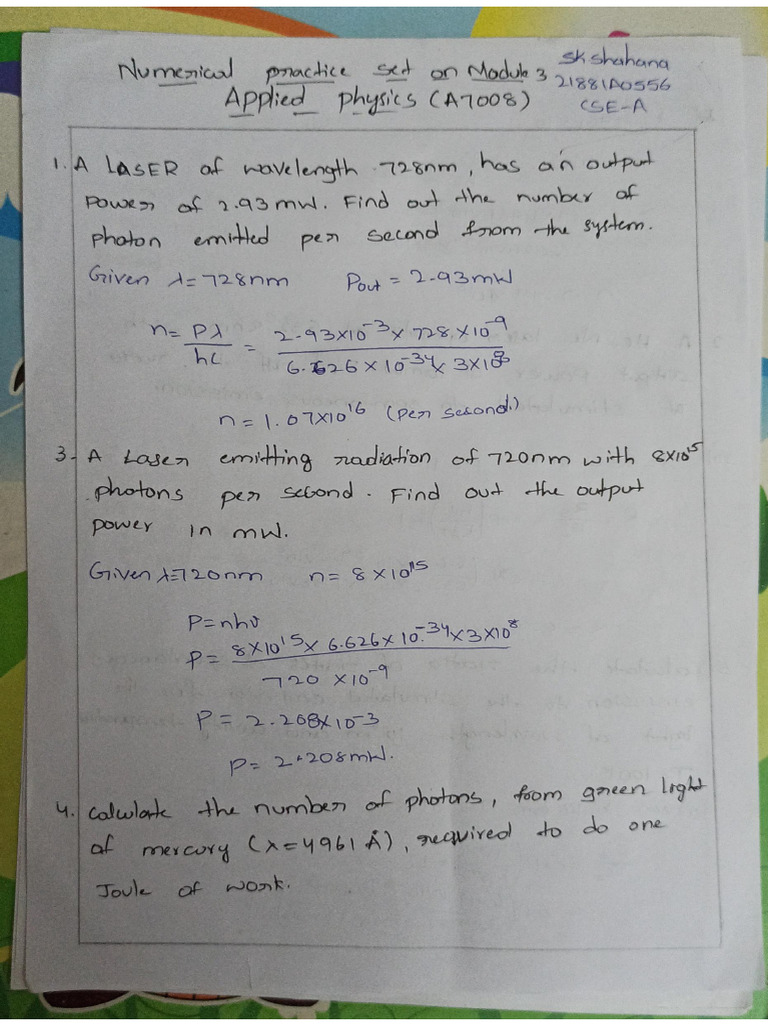 Numerical practice set on Module 3
SK shahana
21881A0556
CSE-A
Applied physics (A7008)
1. A LASER of wavelength 728nm, has an output
power of 2.93mW. Find out the number of
photon emitted per second from the system.
Given λ=728nm Pout = 2.93mW
n= Pλ/hc = 2.93×10⁻³×728×10⁻⁹/6.626×10⁻³⁴×3×10⁸
n=1.07×10¹⁶ (per second.)
3- A Laser emitting radiation of 720nm with 8×10¹⁵
photons per second. Find out the output
power in mW.
Given λ=720nm n=8×10¹⁵
P=nhυ
P= 8×10¹⁵×6.626×10⁻³⁴×3×10⁸/720×10⁻⁹
P= 2.208×10-3
P= 2.208mW.
4. Calculate the number of photons, from green light
of mercury (λ=4961 Å), required to do one
Joule of work.